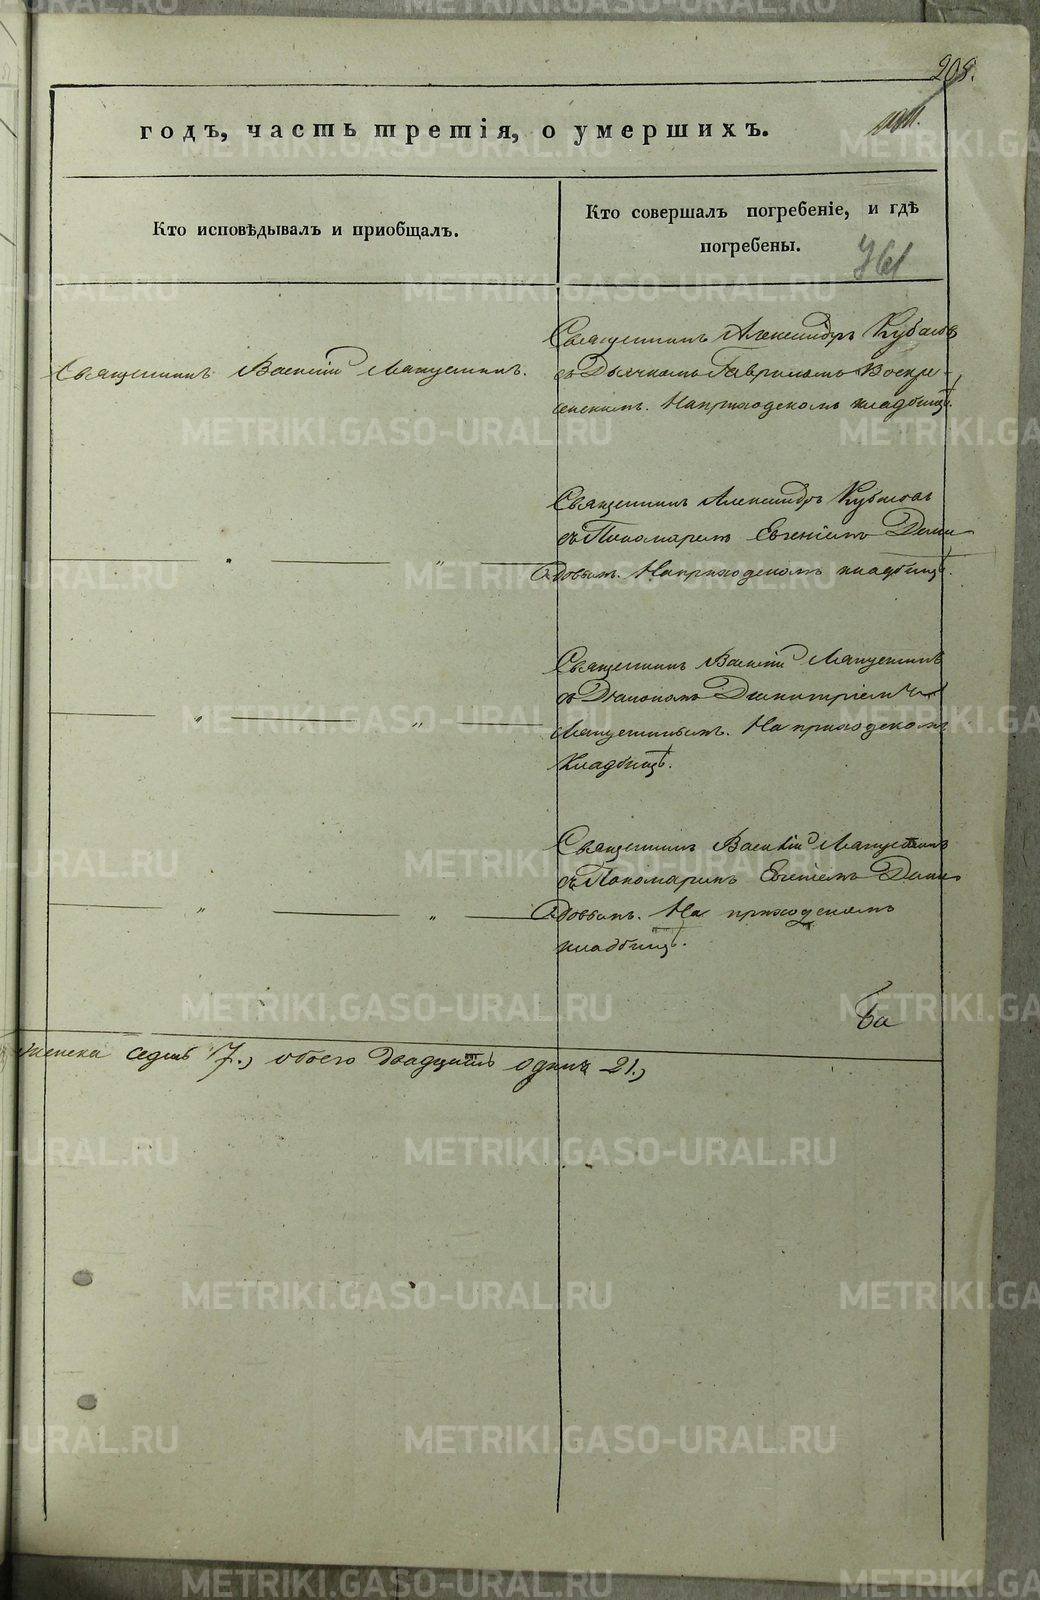 208.
годъ, часть третія, о умершихъ.
Кто исповѣдывалъ и приобщалъ.
Кто совершалъ погребеніе, и гдѣ
погребены.
761
Священникъ Василій Манусминъ.
Священникъ Александръ Кубасовъ
съ Дьячкомъ Гавриломъ Воскре-
сенскимъ. На приходскомъ кладбищѣ.
Священникъ Александръ Кубасовъ
съ Пономаремъ Евгеніемъ Деми-
довымъ. На приходскомъ кладбищѣ.
Священникъ Василій
съ Діакономъ Димитріемъ
На приходскомъ
кладбищѣ.
Священникъ Василій
съ Пономаремъ Евгеніемъ Деми-
довымъ. На приходскомъ
кладбищѣ.
женска седмь 7., обоего двадцать одинъ 21.,
METRIKI.GASO-URAL.RU